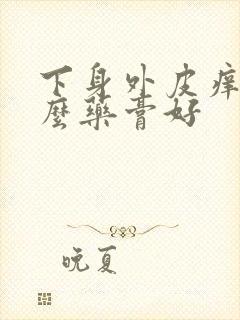 下身外皮痒
麼藥膏好
晚夏